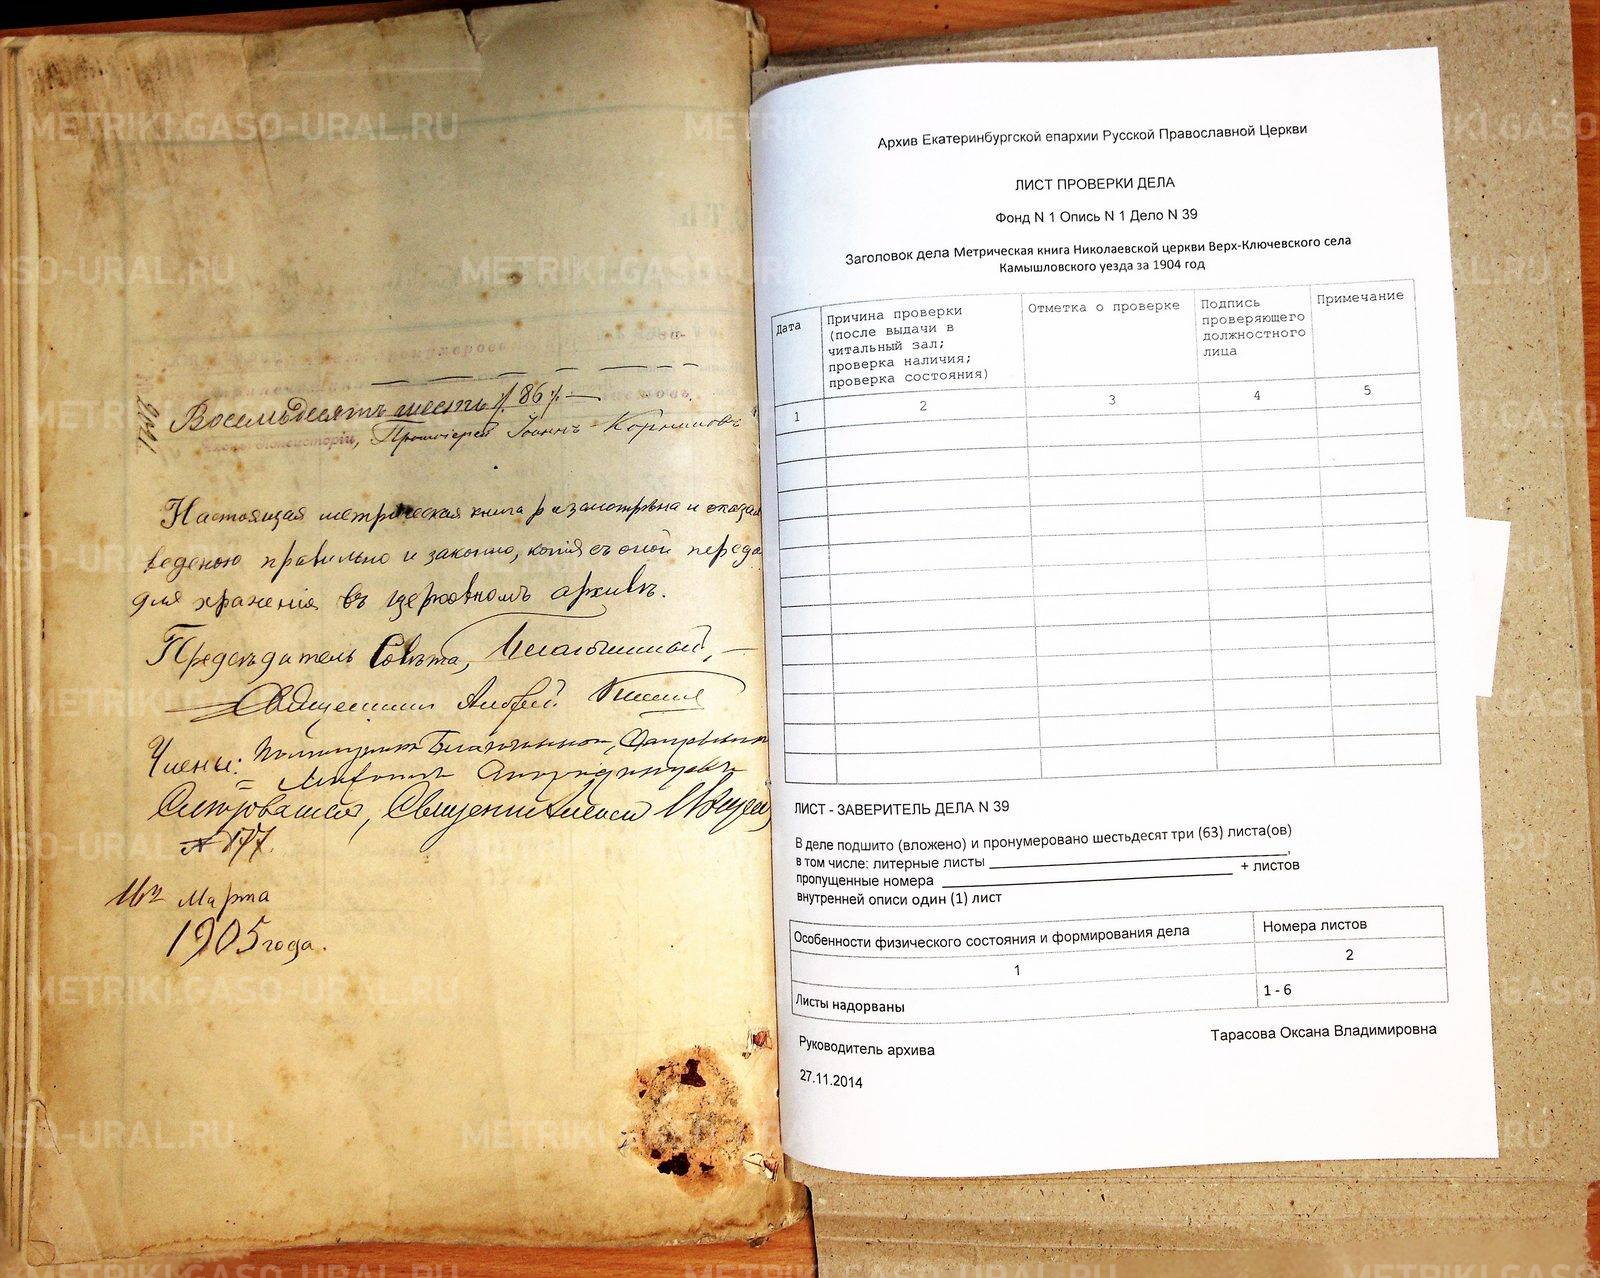 Восемьдесятъ шесть /86/.
Протоіерей Іоаннъ
Настоящая метрическая книга разсмотрѣна и оказал
веденою правильно и законно, копія съ оной переда
для храненія въ церковномъ архивѣ.
Предсѣдатель Совѣта, Благочинный,
Священникъ Андрей
Члены: Помощникъ Благочиннаго,
Священникъ
№ 177.
16го Марта
1905 года.
Архив Екатеринбургской епархии Русской Православной Церкви
ЛИСТ ПРОВЕРКИ ДЕЛА
Фонд N 1 Опись N 1 Дело N 39
Заголовок дела Метрическая книга Николаевской церкви Верх-Ключевского села
Камышловского уезда за 1904 год
Дата
Причина проверки
(после выдачи в
читальный зал;
проверка наличия;
проверка состояния)
Отметка о проверке
Подпись
проверяющего
должностного
лица
Примечание
1 2 3 4 5
ЛИСТ - ЗАВЕРИТЕЛЬ ДЕЛА N 39
В деле подшито (вложено) и пронумеровано шестьдесят три (63) листа(ов)
в том числе: литерные листы ____________________,
+ листов
пропущенные номера ____________________
внутренней описи один (1) лист
Особенности физического состояния и формирования дела Номера листов
1 2
Листы надорваны 1 - 6
Руководитель архива Тарасова Оксана Владимировна
27.11.2014
METRIKI.GASO-URAL.RU